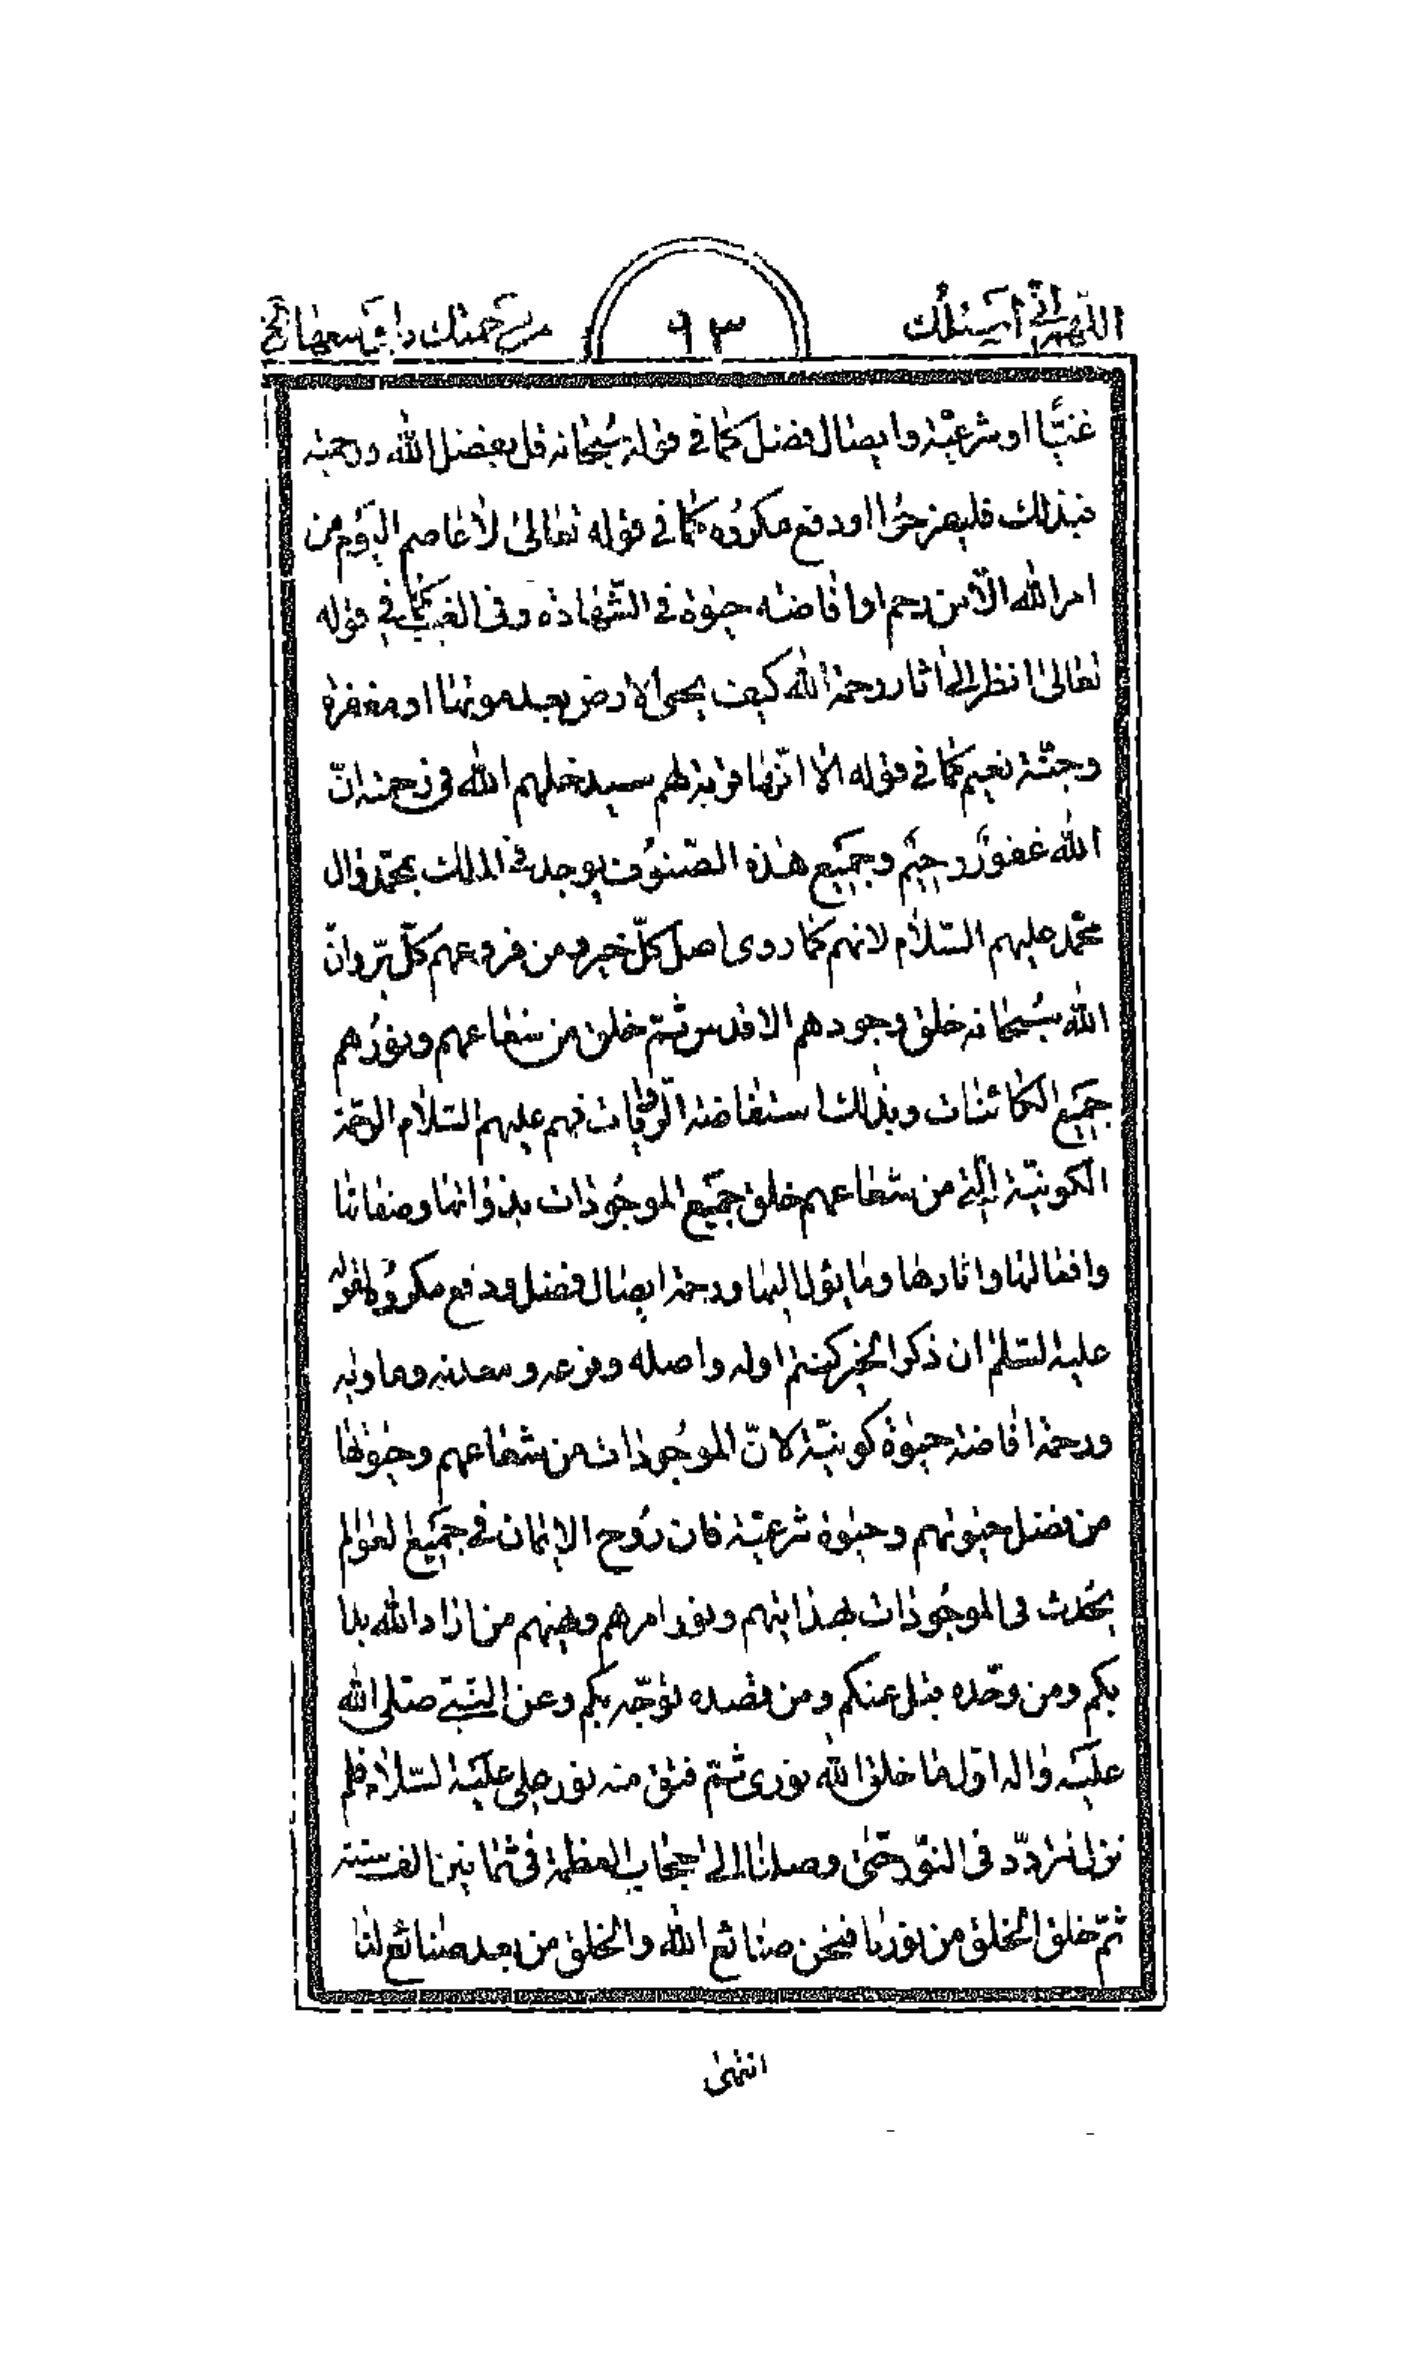 اللهم انى أسئلك ٩٣ من رحمتك باوسعها الخ
غيبيّا او شرعيّة وايصال فضل كما فى قوله سُبحانه قل بفضل الله ورحمته
فبذلك فليفرحُوا او دفع مكروُه كما فى قوله تعالى لا عاصم اليَوم من
امر الله الّا من رحم او افاضه حيٰوة فى الشّهادة وفى الغيب كما فى قوله
تعالى انظر الى اثار رحمة الله كيف يحيى الارض بعد موتها او مغفرة
وجنّة نعيم كما فى قوله الا انّها قربة لهم سيدخلهم الله فى رحمته انّ
الله غفورٌ رحيم وجميع هذه الصّنوُف يوجد فى الملك بمحمّد وال
محمّد عليهم السّلام لانهم كما روى اصل كلّ خير ومن فروعهم كلّ برّ وانّ
الله سُبحانه خلق وجودهم الاقدس ثمّ خلق من شعاعهم ونوُرهم
جميع الكائنات وبذلك استفاضة الرّوايات فهم عليهم السّلام الرّحمة
الكونيّة الّتى من شعاعهم خلق جميع الموجُودات بذواتها وصفاتها
وافعالها واثارها وما يؤل اليها ورحمة ايصال فضل ودفع مكروُه لقوله
عليه السّلام ان ذكر الخير كنتم اوله واصله وفرعه ومعدنه وماويه
ورحمة افاضة حيٰوة كونيّة لانّ الموجُودات من شعاعهم وحيٰوتها
من فضل حيوتهم وحيٰوة شرعيّة فان روُح الايمان فى جميع العوالم
يحُدث فى الموجُودات بهدايتهم ونور امرهم ونهيهم من اراد الله بدا
بكم ومن وحّده قبل عنكم ومن قصده توجّه بكم وعن النّبىّ صلى الله
عليه واله اوّل ما خلق الله نورى ثمّ فتق منه نور على عليه السّلام فلم
نزل نتردّد فى النّور حتّى وصلنا الى حجاب العظمة فى ثمانين الف سنة
ثمّ خلق الخلق من نورنا فنحن صنائع الله والخلق من بعد صنائع لنا
انتهى